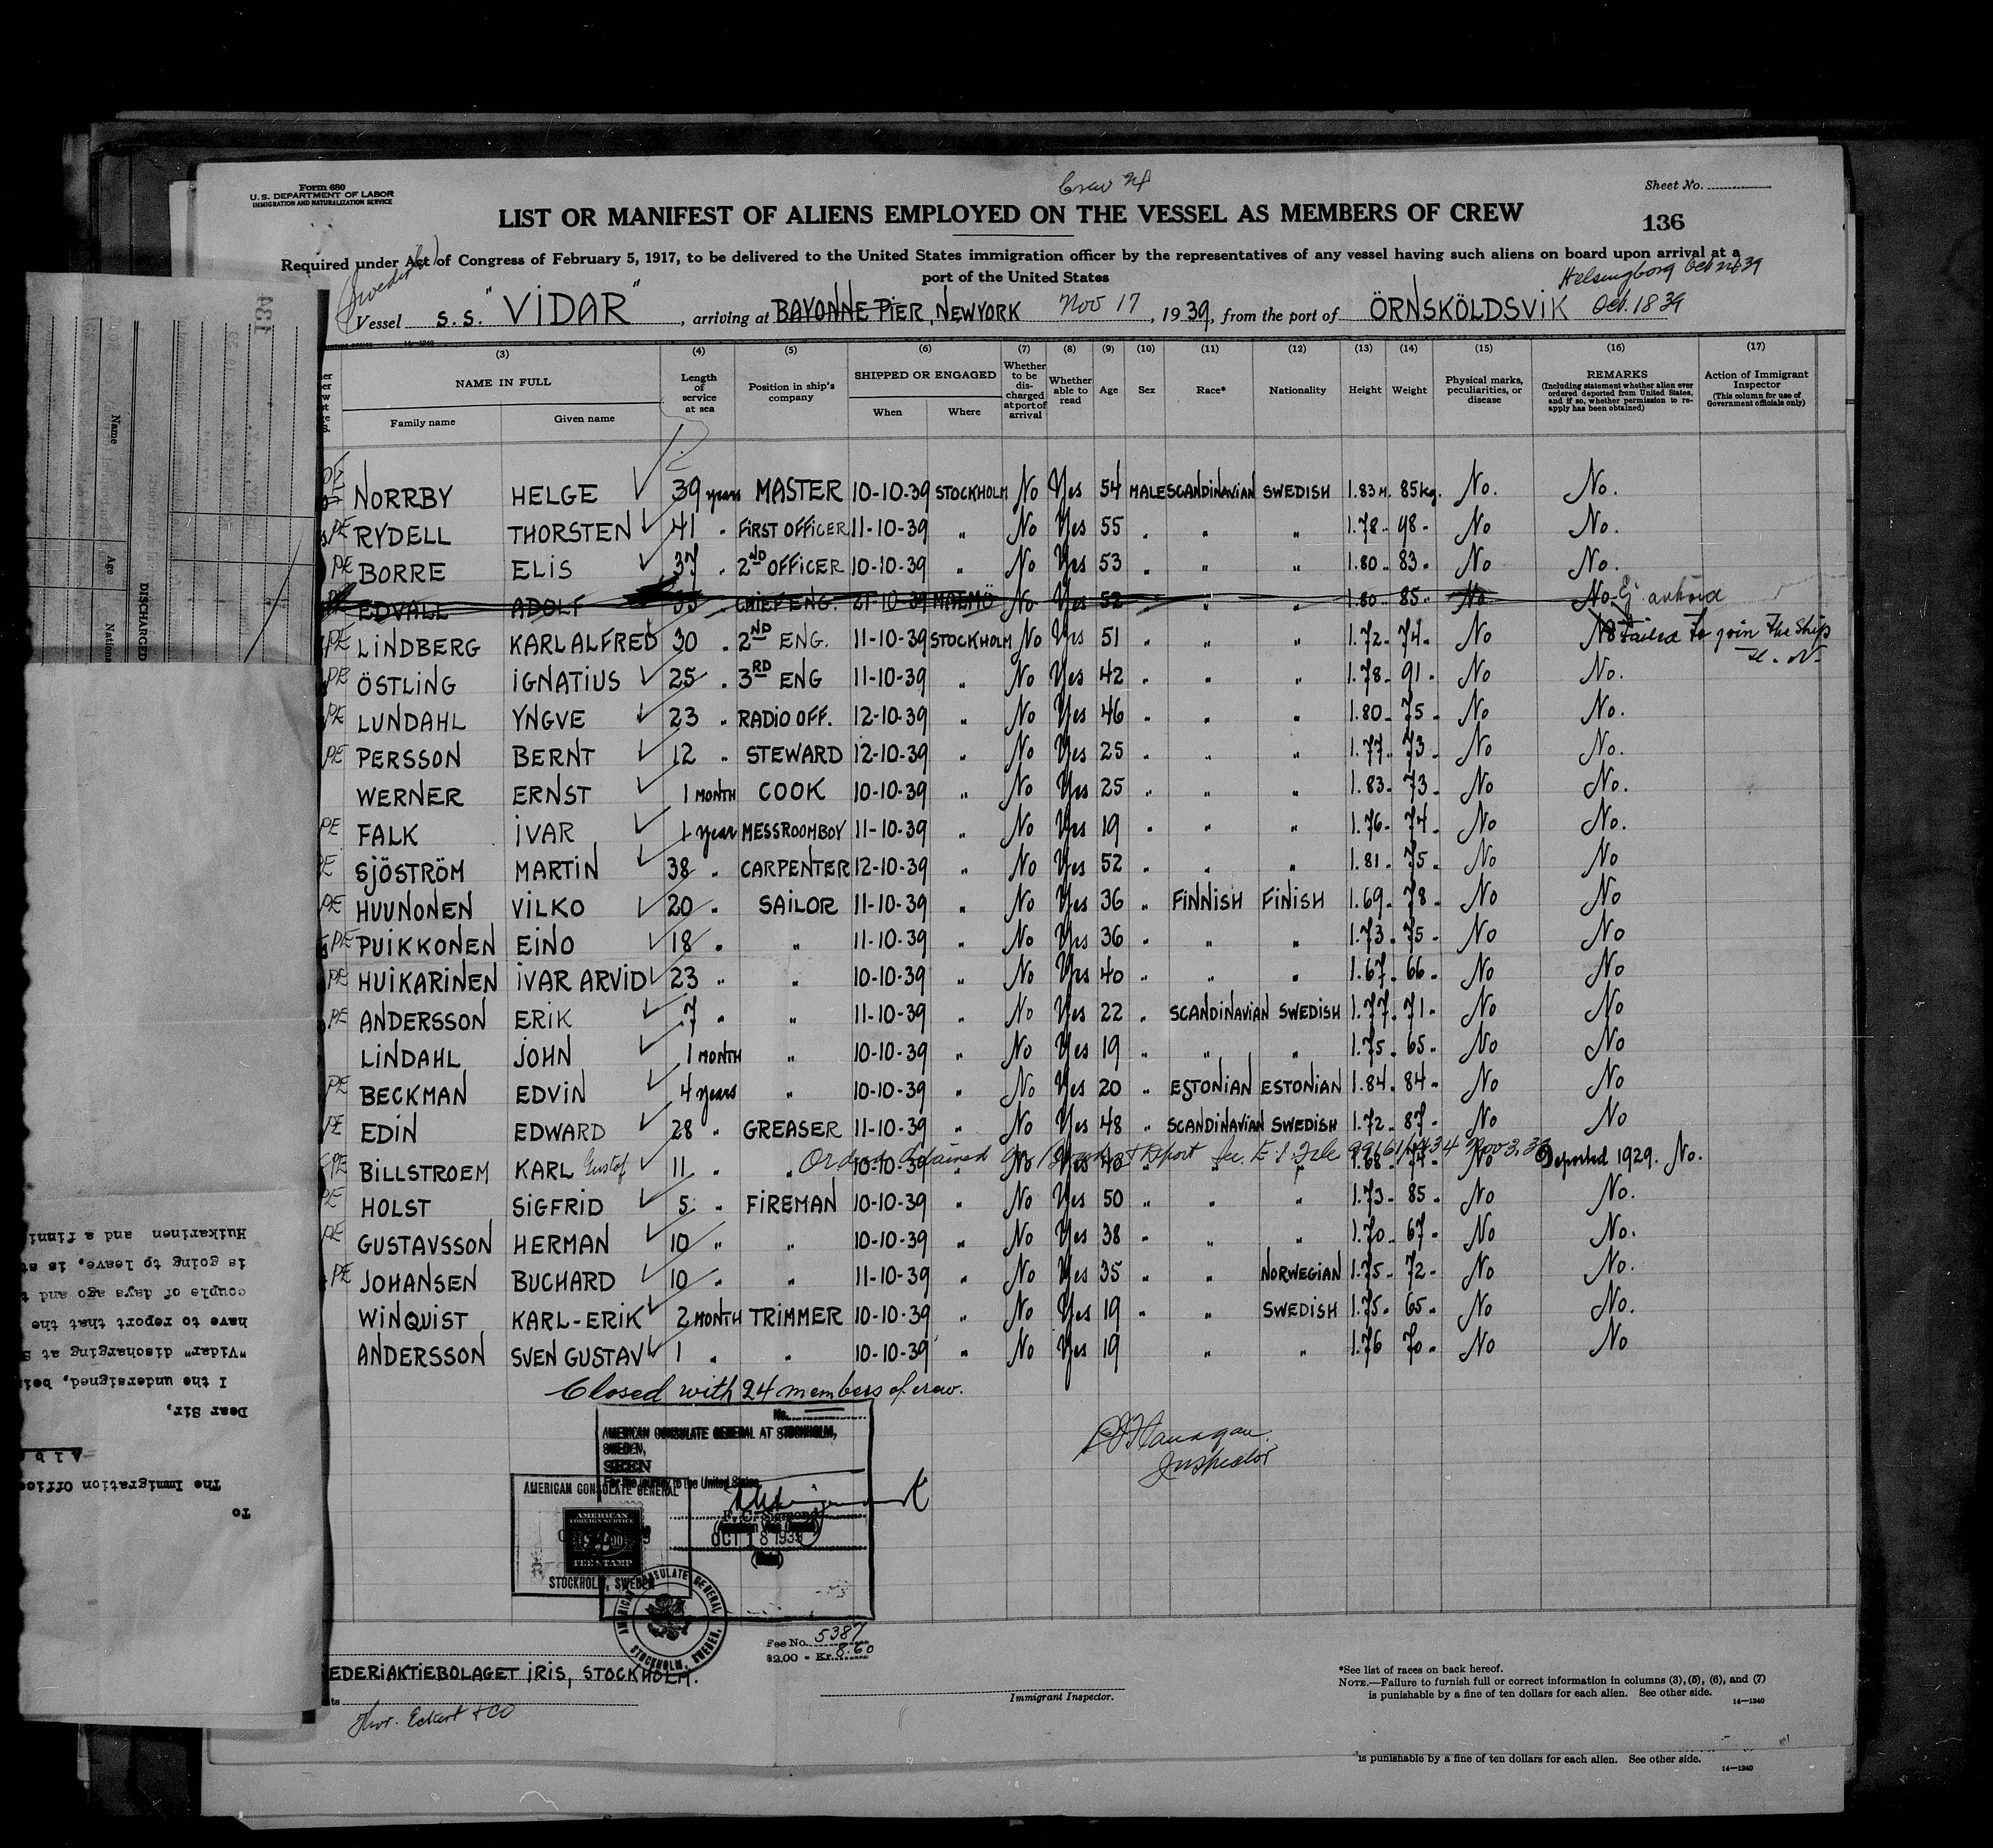 Form 680
U.S. DEPARTMENT OF LABOR
IMMIGRATION AND NATURALIZATION SERVICE
Crew 24
Sheet No.
136
LIST OR MANIFEST OF ALIENS EMPLOYED ON THE VESSEL AS MEMBERS OF CREW
Required under Act of Congress of February 5, 1917, to be delivered to the United States immigration officer by the representatives of any vessel having such aliens on board upon arrival at a
port of the United States
(Swedish)
Helsingborg Oct 21 39
Vessel S.S. "VIDAR", arriving at BAYONNE PIER, NEWYORK Nov 17, 1939, from the port of ÖRNSKÖLDSVIK Oct. 18 39
(3) (4) (5) (6) (7) (8) (9) (10) (11) (12) (13) (14) (15) (16) (17)
NAME IN FULL
Family name Given name
Length of service at sea
Position in ship's company
SHIPPED OR ENGAGED
When Where
Whether to be discharged at port of arrival
Whether able to read
Age Sex Race* Nationality Height Weight
Physical marks, peculiarities, or disease
REMARKS
(Including statement whether alien ever ordered deported from United States, and if so, whether permission to reapply has been obtained)
Action of Immigrant Inspector
(This column for use of Government officials only)
PE NORRBY HELGE 39 years MASTER 10-10-39 STOCKHOLM No Yes 54 MALE SCANDINAVIAN SWEDISH 1.83 M. 85 kg. No. No.
PE RYDELL THORSTEN 41 " FIRST OFFICER 11-10-39 " No Yes 55 " " " 1.78 " 98 " No No.
PE BORRE ELIS 37 " 2ND OFFICER 10-10-39 " No Yes 53 " " " 1.80 " 83 " No No.
EDVALL ADOLF 35 " CHIEF ENG. 21-10-39 MALMÖ No Yes 52 " " 1.80 " 85 " No No
PE LINDBERG KARL ALFRED 30 " 2ND ENG. 11-10-39 STOCKHOLM No Yes 51 " " " 1.72 " 74 " No No Failed to join the ship
PE ÖSTLING IGNATIUS 25 " 3RD ENG 11-10-39 " No Yes 42 " " " 1.78 " 91 " No No.
PE LUNDAHL YNGVE 23 " RADIO OFF. 12-10-39 " No Yes 46 " " " 1.80 " 75 " No No.
PE PERSSON BERNT 12 " STEWARD 12-10-39 " No Yes 25 " " " 1.77 " 73 " No No.
WERNER ERNST 1 MONTH COOK 10-10-39 " No Yes 25 " " " 1.83 " 73 " No No.
PE FALK IVAR 1 year MESSROOMBOY 11-10-39 " No Yes 19 " " " 1.76 " 74 " No No.
PE SJÖSTRÖM MARTIN 38 " CARPENTER 12-10-39 " No Yes 52 " " " 1.81 " 75 " No No
PE HUUNONEN VILKO 20 " SAILOR 11-10-39 " No Yes 36 " FINNISH FINISH 1.69 " 78 " No No
PE PUIKKONEN EINO 18 " " 11-10-39 " No Yes 36 " " " 1.73 " 75 " No No
PE HUIKARINEN IVAR ARVID 23 " " 10-10-39 " No Yes 40 " " " 1.67 " 66 " No No
PE ANDERSSON ERIK 7 " " 11-10-39 " No Yes 22 " SCANDINAVIAN SWEDISH 1.77 " 71 " No No
LINDAHL JOHN 1 MONTH " 10-10-39 " No Yes 19 " " " 1.75 " 65 " No No
PE BECKMAN EDVIN 4 years " 10-10-39 " No Yes 20 " ESTONIAN ESTONIAN 1.84 " 84 " No No
PE EDIN EDWARD 28 " GREASER 11-10-39 " No Yes 48 " SCANDINAVIAN SWEDISH 1.72 " 87 " No No
Ordered detained on Board & Report See E.I. File
PE BILLSTROEM KARL Gustof 11 " " 10-10-39 " No Yes 40 " " " 1.68 " No Deported 1929. No.
PE HOLST SIGFRID 5 " FIREMAN 10-10-39 " No Yes 50 " " " 1.73 " 85 " No No.
PE GUSTAVSSON HERMAN 10 " " 10-10-39 " No Yes 38 " " " 1.70 " 67 " No No.
PE JOHANSEN BUCHARD 10 " " 11-10-39 " No Yes 35 " " NORWEGIAN 1.75 " 72 " No No.
WINQUIST KARL-ERIK 2 MONTH TRIMMER 10-10-39 " No Yes 19 " " SWEDISH 1.75 " 65 " No No.
ANDERSSON SVEN GUSTAV 1 " " 10-10-39 " No Yes 19 " " 1.76 70 " No No
Closed with 24 members of crew.
Flanagan
Inspector
No.
AMERICAN CONSULATE GENERAL AT STOCKHOLM,
SWEDEN,
SEEN
For the journey to the United States
AMERICAN CONSULATE GENERAL
AMERICAN FOREIGN SERVICE
FEE STAMP
STOCKHOLM, SWEDEN
OCT 18 1939
(Date)
AMERICAN CONSULATE GENERAL STOCKHOLM, SWEDEN.
Fee No. 5387
$2.00 = Kr. 8.60
EDERIAKTIEBOLAGET IRIS, STOCKHOLM.
Thor. Eckert & Co
Immigrant Inspector.
*See list of races on back hereof.
NOTE.—Failure to furnish full or correct information in columns (3), (5), (6), and (7)
is punishable by a fine of ten dollars for each alien. See other side.
14—1240
is punishable by a fine of ten dollars for each alien. See other side.
14—1240
134
Name
Age
DISCHARGED
To
The Immigration Office
Dear Sir,
I the undersigned, bei
"Vidar" discharging at S
have to report that the
couple of days ago and t
is going to leave, is st
Huikarinen and a finni